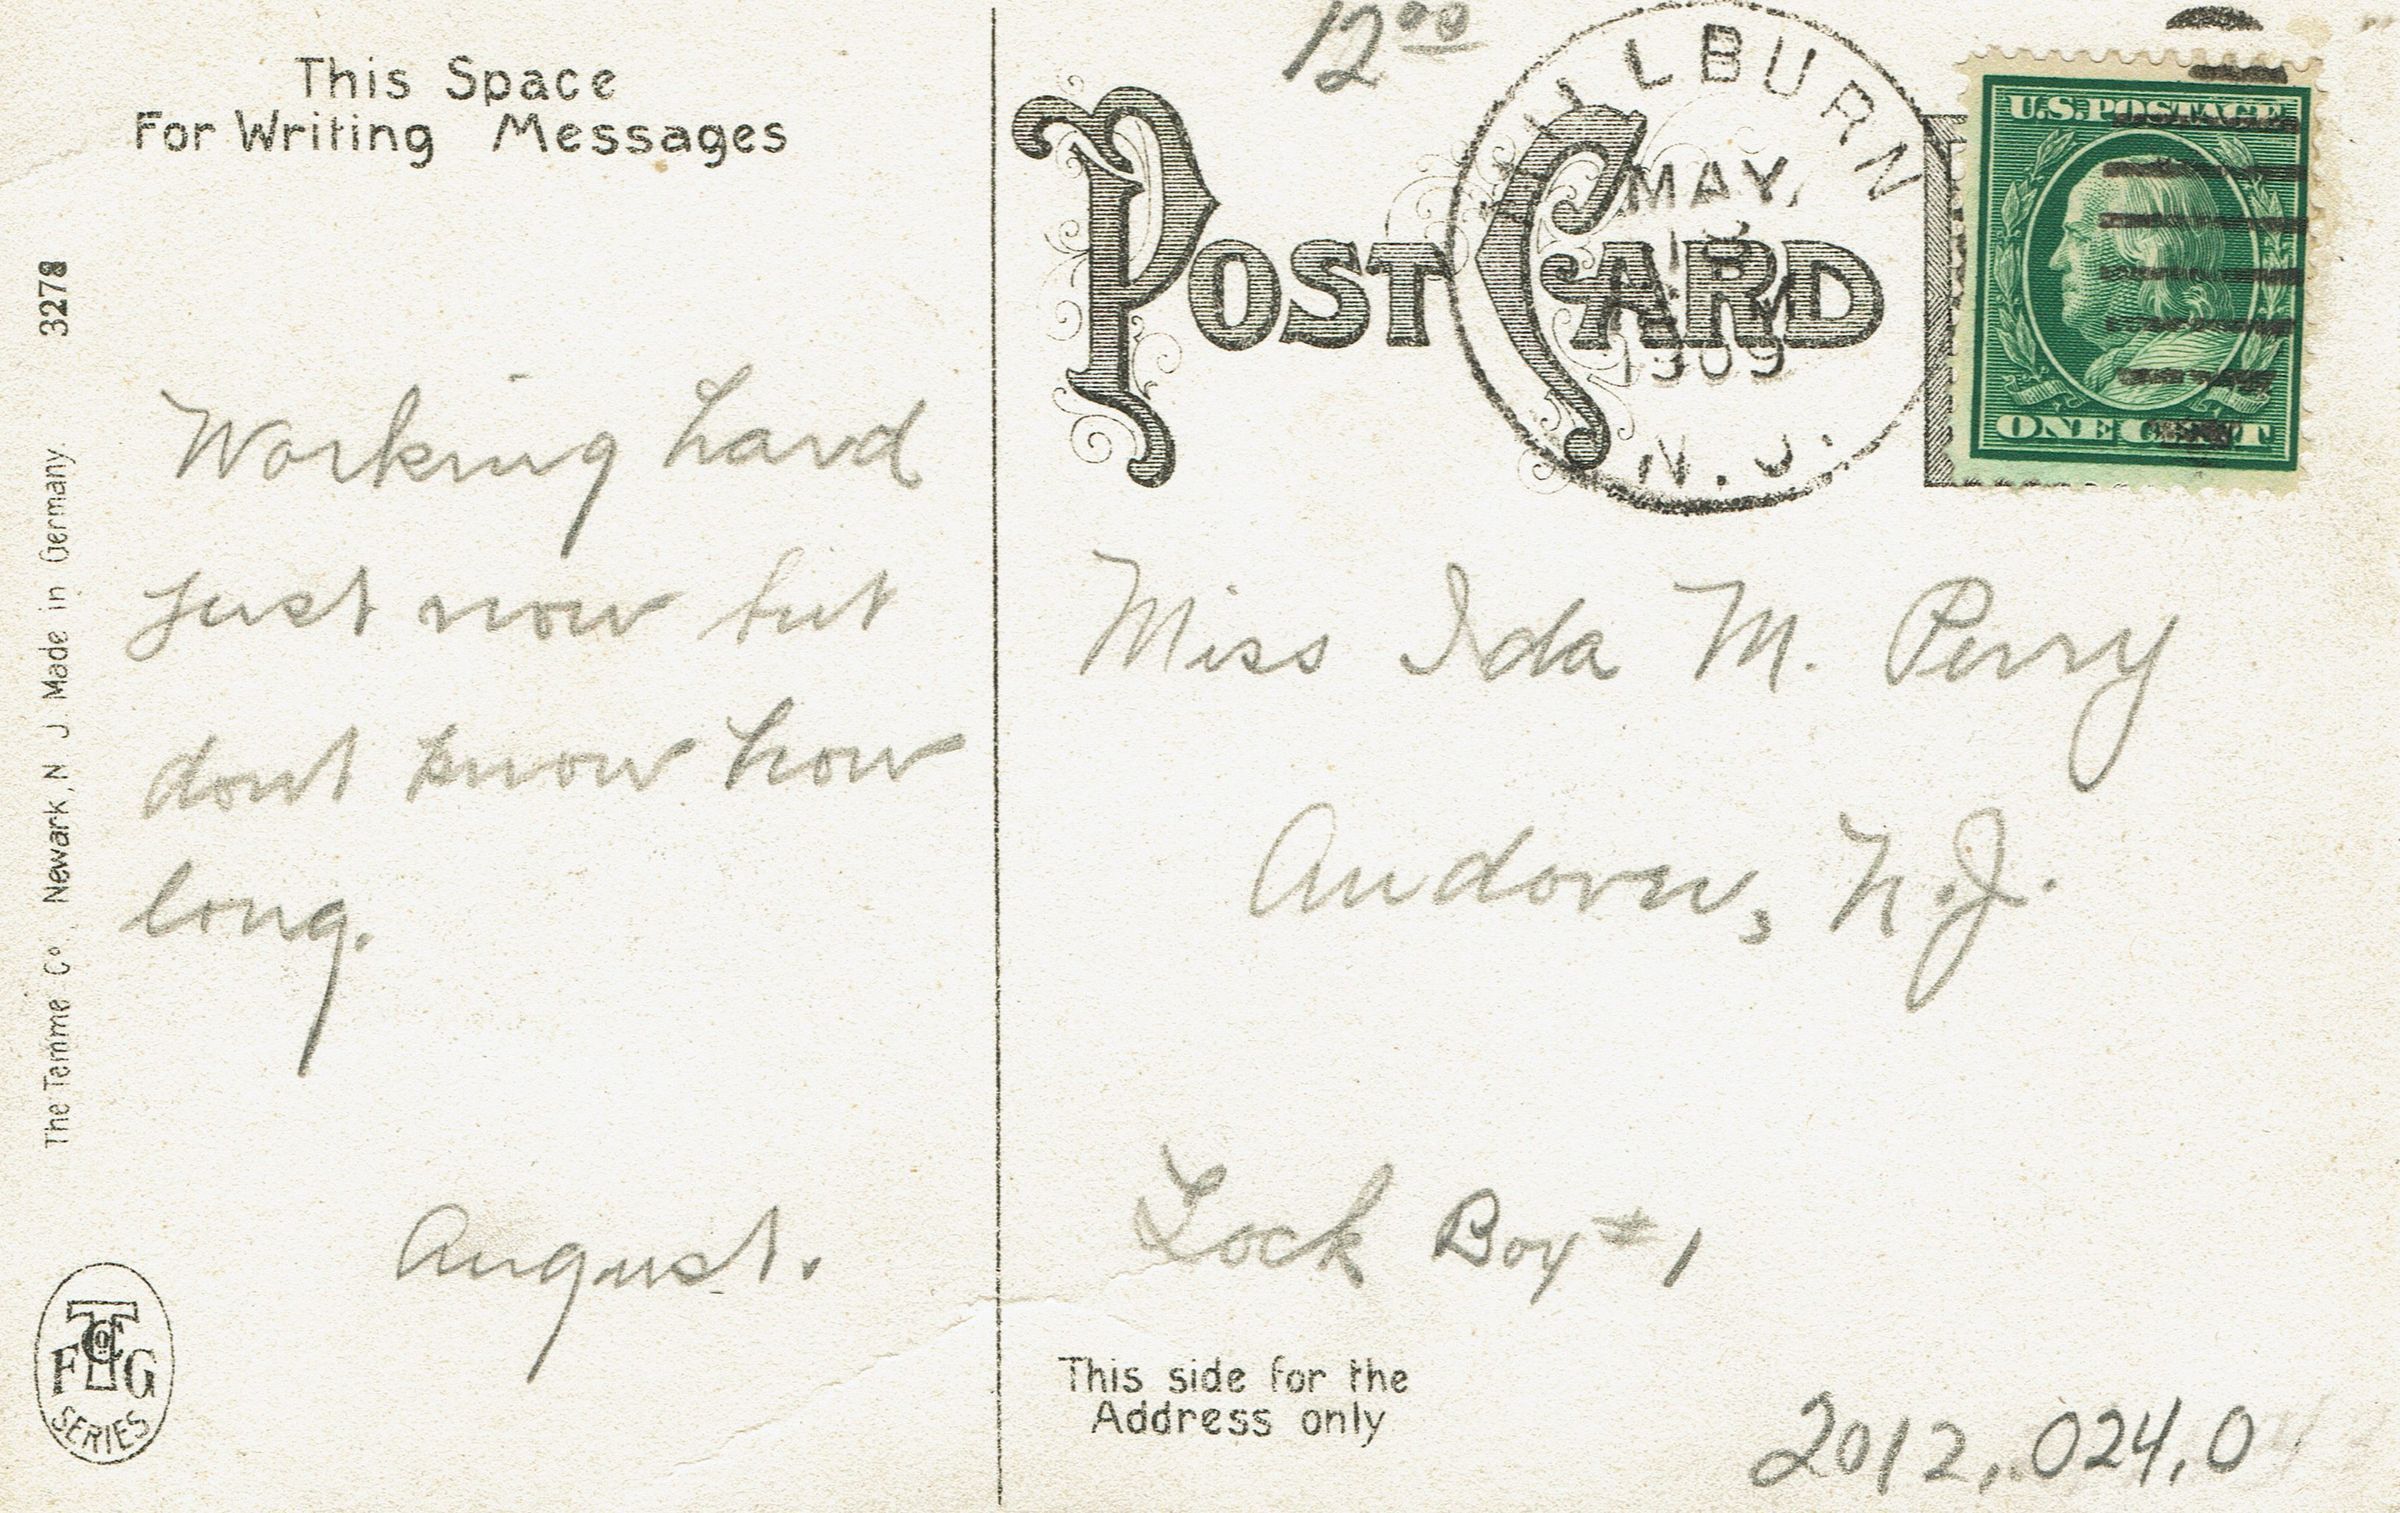 This Space
For Writing Messages
3278
The Temme Co. Newark, N J Made in Germany.
Working hard
just now but
dont know how
long.
August.
FTG
Co
SERIES
12 00
POST CARD
MILBURN
MAY,
1909
N.J.
U.S. POSTAGE
ONE CENT
Miss Ida M. Perry
Andover, N.J.
Lock Box # 1
This side for the
Address only
2012.024.0